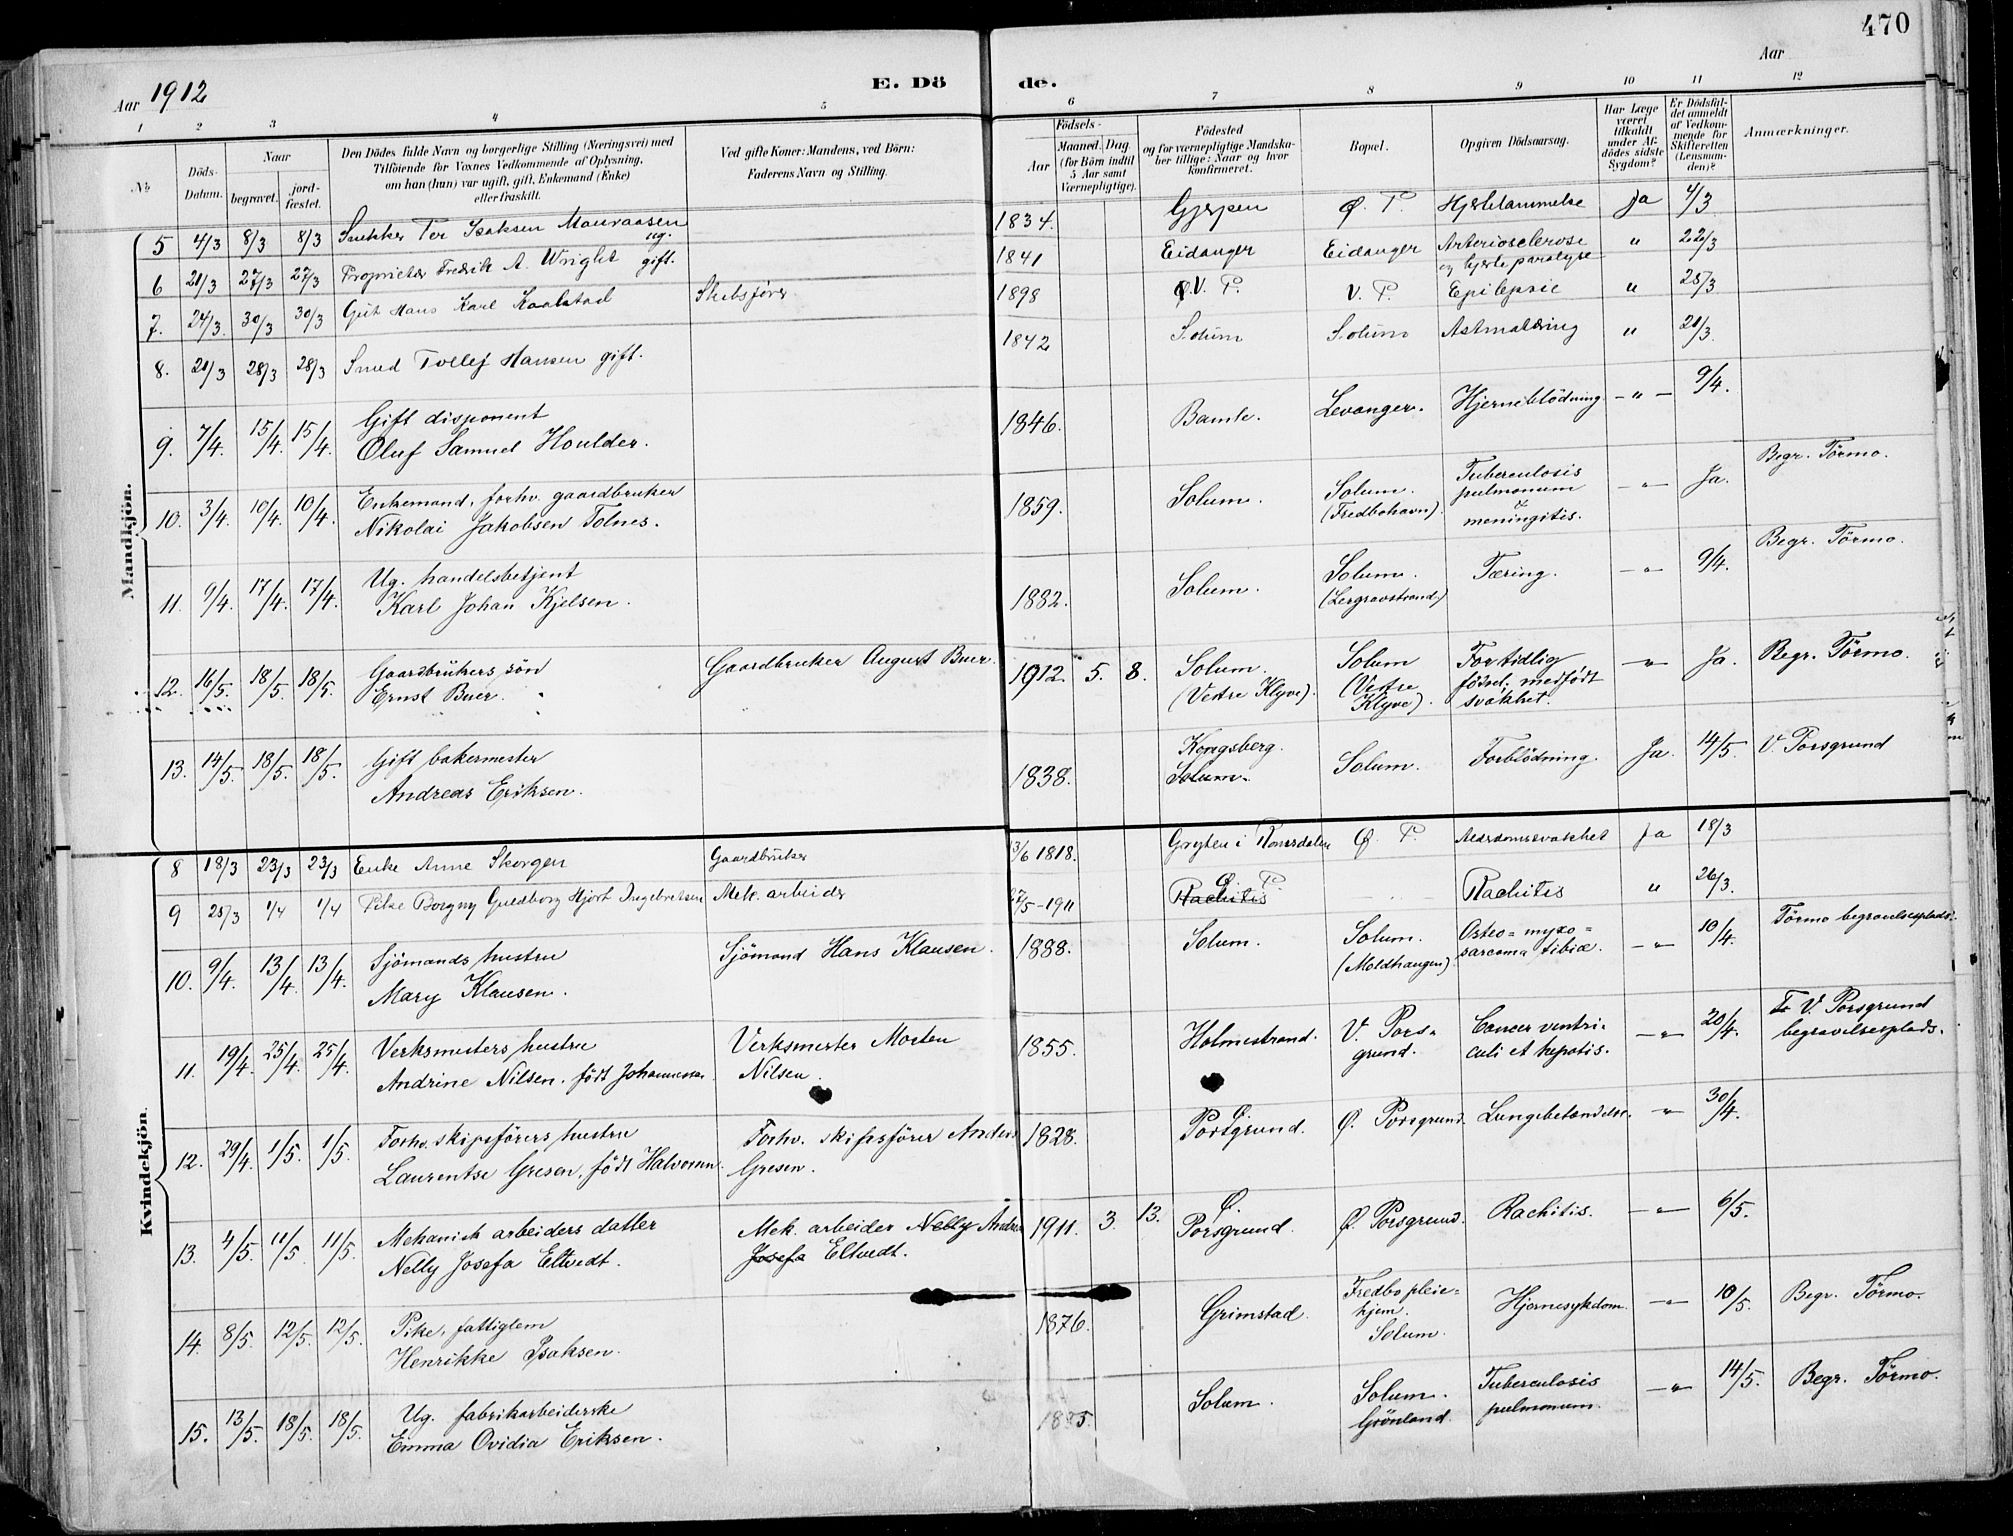 470
Aar 1912
E. Dö de.
Aar
1 2 3 4 5 6 7 8 9 10 11 12
№
Döds-Datum.
Naar
begravet.
jord-fæstet.
Den Dödes fulde Navn og borgerlige Stilling (Næringsvei) med
Tilföiende for Voxnes Vedkommende af Oplysning,
om han (hun) var ugift, gift, Enkemand (Enke)
eller fraskilt.
Ved gifte Koner: Mandens, ved Börn:
Faderens Navn og Stilling.
Födsels-
Aar
Maaned. Dag.
(for Börn indtil
5 Aar samt
Værnepligtige).
Födested
og for værnepligtige Mandska-
ber tillige: Naar og hvor
konfirmeret.
Bopæl.
Opgiven Dödsaarsag.
Har Læge
været
tilkaldt
under Af-
dödes sidste
Sygdom?
Er Dödsfal-
det anmeldt
af Vedkom-
mende for
Skifteretten
(Lensman-
den)?
Anmærkninger.
Mandkjön.
5 4/3 8/3 8/3 Snekker Per Isaksen Mauraasen ug. 1834. Gjerpen Ø. P. Hjertelammelse Ja 4/3
6 21/3 27/3 27/3 Proprietær Fredrik A. Wright gift. 1841 Eidanger Eidanger Arteriosclerose og hjerteparalyse " 22/3
7. 24/3 30/3 30/3 Gut Hans Karl Kaalstad Skibsfører 1898 V. P. V. P. Epilepsie " 25/3
8. 20/3 28/3 28/3 Smed Tollef Hansen gift. 1842 Solum Solum Astmatæring " 21/3.
9. 7/4. 15/4. 15/4. Gift disponent
Oluf Samuel Houlder. 1846. Bamle. Levanger. Hjerneblödning - " - 9/4.
10. 3/4. 10/4. 10/4. Enkemand, forhv. gaardbruker
Nikolai Jakobsen Tolnes. 1859. Solum. Solum. (Fredbohavn) Tuberculosis pulmonum & meningitis. - " - Ja. Begr. Törmo.
11. 9/4. 17/4. 17/4. Ug. handelsbetjent
Karl Johan Kjelsen. 1882. Solum. Solum. (Lergravstrand.) Tæring. - " - 9/4. Begr. Törmo.
12. 16/5. 18/5. 18/5. Gaardbrükers sön
Ernst Buer. Gaardbruker August Buer. 1912. 5. 8. Solum. (Vestre Klyve). Solum (Vestre Klyve). For tidlig födsel. medfödt svakhet. - " - Ja. Begr. Törmo.
13. 14/5. 18/5. 18/5. Gift bakermester
Andreas Eriksen. 1838. Kongsberg. Solum. Solum. Forblödning. Ja. 14/5. V. Porsgrund
Kvindekjön.
8 18/3 23/3 23/3 Enke Anne Skorgen Gaardbruker 13/6 1818. Gryten i Romsdalen Ø P Alderdomssvakhet Ja 18/3
9 25/3 1/4 1/4 Pike Borgny Guldborg Hjort Ingebretsen Mek. arbeider 27/5-1911 Ø. P. Rachitis Rachitis " 26/3.
10. 9/4. 13/4. 13/4. Sjömands hustru
Mary Klausen. Sjömand Hans Klausen. 1888. Solum. Solum. (Moldhaugen). Osteo=myxo=sarcoma tibiæ. - " - 10/4. Törmo begravelsesplads.
11. 19/4. 25/4. 25/4. Verksmesters hustru
Andrine Nilsen, födt Johannessen Verksmester Morten Nilsen. 1855. Holmestrand. V. Porsgrund. Cancer ventriculi et hepatis. - " - 20/4. V. Porsgrund begravelsesplads.
12. 29/4. 1/5. 1/5. Forhv. skipsförers hustru
Laurentse Gresen, födt Halvorsen. Forhv. skipsförer Anders Gresen. 1828. Ø. Porsgrund. Ø. Porsgrund. Lungebetændelse. " 30/4.
13. 4/5. 11/5. 11/5. Mekanisk arbeiders datter
Nelly Josefa Eltvedt. Mek. arbeider Nelly Andreas Josefa Eltvedt. 1911. 3. 13. Ø. Porsgrund. Ø. Porsgrund. Rachitis. - " - 6/5.
14. 8/5. 12/5. 12/5. Pike, fattiglem
Henrikke Isaksen. 1876. Grimstad. Fredbo pleiehjem. Solum. Hjernesykdom. - " - 10/5. Begr. Törmo.
15. 13/5. 18/5. 18/5. Ug. fabrikarbeiderske
Emma Ovidia Eriksen. Solum. Solum. Grönland. Tuberculosis pulmonum. - " - 14/5. Begr. Törmo.